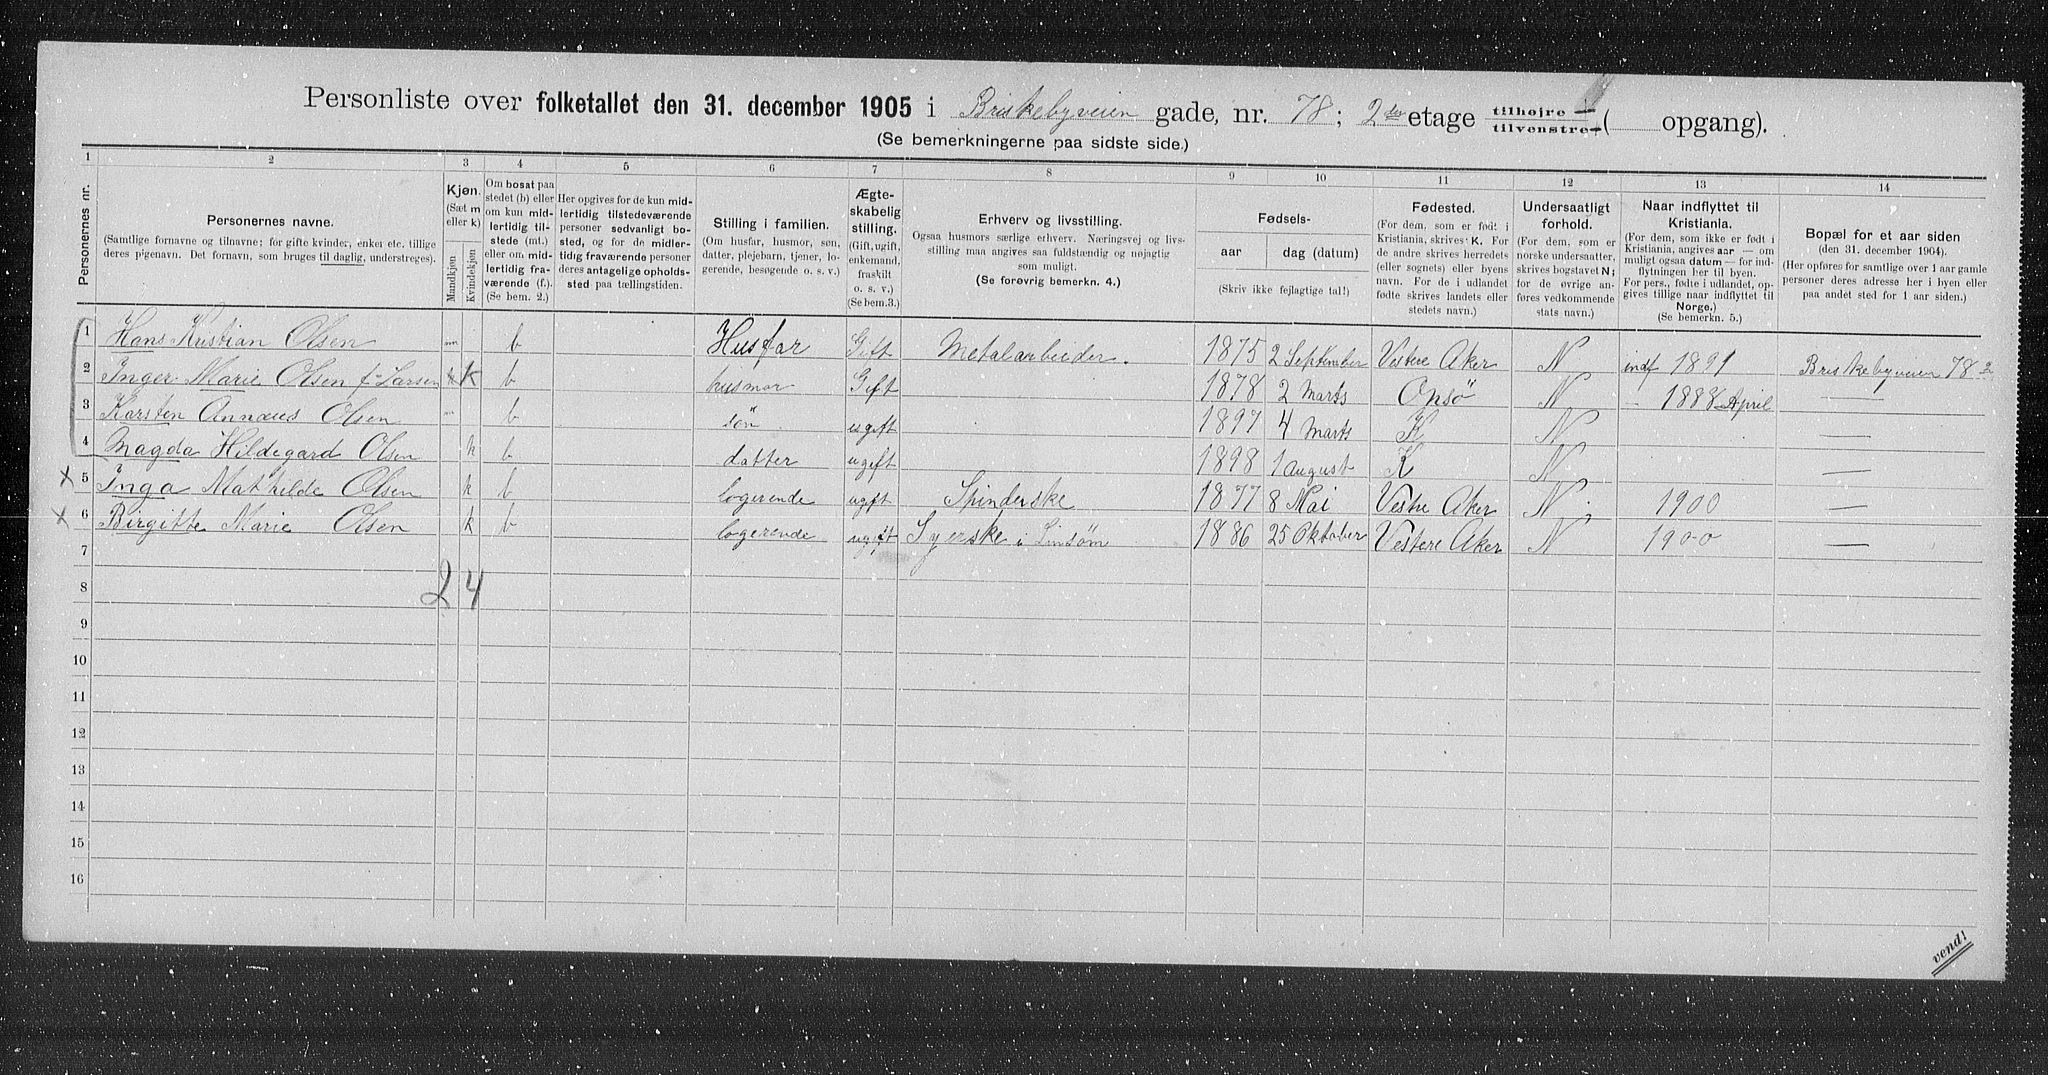 Personliste over folketallet den 31. december 1905 i Briskebyveien gade, nr. 78; 2den etage tilhøjre tilvenstre ( opgang).
(Se bemerkningerne paa sidste side.)
1 2 3 4 5 6 7 8 9 10 11 12 13 14
Personernes nr.
Personernes navne.
(Samtlige fornavne og tilnavne; for gifte kvinder, enker etc. tillige deres pigenavn. Det fornavn, som bruges til daglig, understreges).
Kjøn. (Sæt m eller k)
Mandkjøn
Kvindekjøn
Om bosat paa stedet (b) eller om kun midlertidig tilstede (mt.) eller om midlertidig fraværende (f.). (Se bem. 2.)
Her opgives for de kun midlertidig tilstedeværende personer sedvanligt bosted, og for de midlertidig fraværende personer deres antagelige opholdssted paa tællingstiden.
Stilling i familien.
(Om husfar, husmor, søn, datter, plejebarn, tjener, logerende, besøgende o. s. v.)
Ægteskabelig stilling.
(Gift, ugift, enkemand, fraskilt o. s. v.) (Se bem. 3.)
Erhverv og livsstilling.
Ogsaa husmors særlige erhverv. Næringsvej og livsstilling maa angives saa fuldstændig og nøjagtig som muligt.
(Se forøvrig bemerkn. 4.)
Fødsels-
aar dag (datum)
(Skriv ikke fejlagtige tal!)
Fødested.
(For dem, som er født i Kristiania, skrives: K. For de andre skrives herredets (eller sognets) eller byens navn. For de i udlandet fødte skrives landets eller stedets navn.)
Undersaatligt forhold.
(For dem, som er norske undersaatter, skrives bogstavet N; for de øvrige angives vedkommende stats navn.)
Naar indflyttet til Kristiania.
(For dem, som ikke er født i Kristiania, angives aar — om muligt ogsaa datum — for indflytningen her til byen. For pers., fødte i udlandet, opgives tillige naar indflyttet til Norge.)
(Se bemerkn. 5.)
Bopæl for et aar siden
(den 31. december 1904).
(Her opføres for samtlige over 1 aar gamle personer deres adresse her i byen eller paa andet sted for 1 aar siden.)
1 Hans Kristian Olsen m b Husfar Gift Metalarbeider. 1875 2 September Vestere Aker N indf 1891 Briskebyveien 78 2
2 Inger Marie Olsen f. Larsen k b husmor Gift 1878 2 Marts Onsö N 1888 April —
3 Karsten Annæus Olsen m b sön ugift 1897 4 Marts K N —
4 Magda Hildegard Olsen k b datter ugift 1898 1 August K N —
x 5 Inga Mathilde Olsen k b logerende ugift Spinderske 1877 8 Mai Vestre Aker N. 1900 —
x 6 Birgitte Marie Olsen k b logerende ugift Syerske i Linsöm 1886 25 Oktober Vestere Aker N 1900 —
7
8 2 4
9
10
11
12
13
14
15
16
vend!